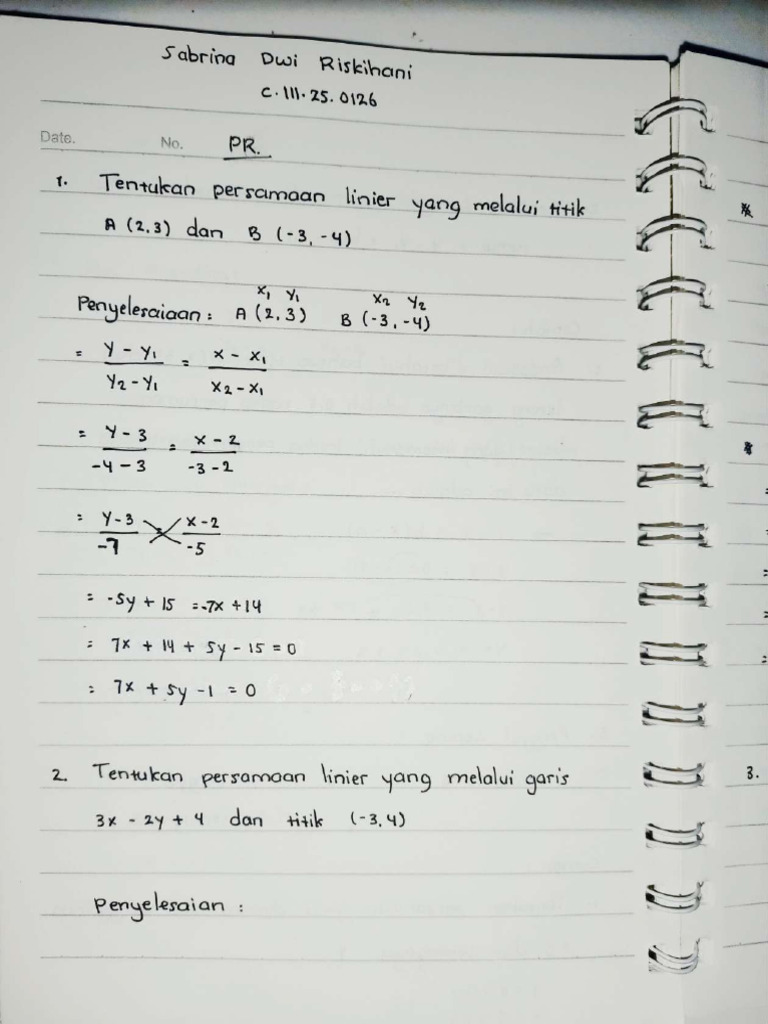 Sabrina Dwi Riskihani
C.111.25.0126
Date. No. PR.
1. Tentukan persamaan linier yang melalui titik
A (2,3) dan B (-3, -4)
x₁ y₁ x₂ y₂
Penyelesaiaan : A (2,3) B (-3, -4)
= y - y₁ / y₂ - y₁ = x - x₁ / x₂ - x₁
= y - 3 / -4 - 3 = x - 2 / -3 - 2
= y - 3 / -7 = x - 2 / -5
= -5y + 15 = -7x + 14
= 7x + 14 + 5y - 15 = 0
= 7x + 5y - 1 = 0
2. Tentukan persamaan linier yang melalui garis
3x - 2y + 4 dan titik (-3, 4)
Penyelesaian :
3.